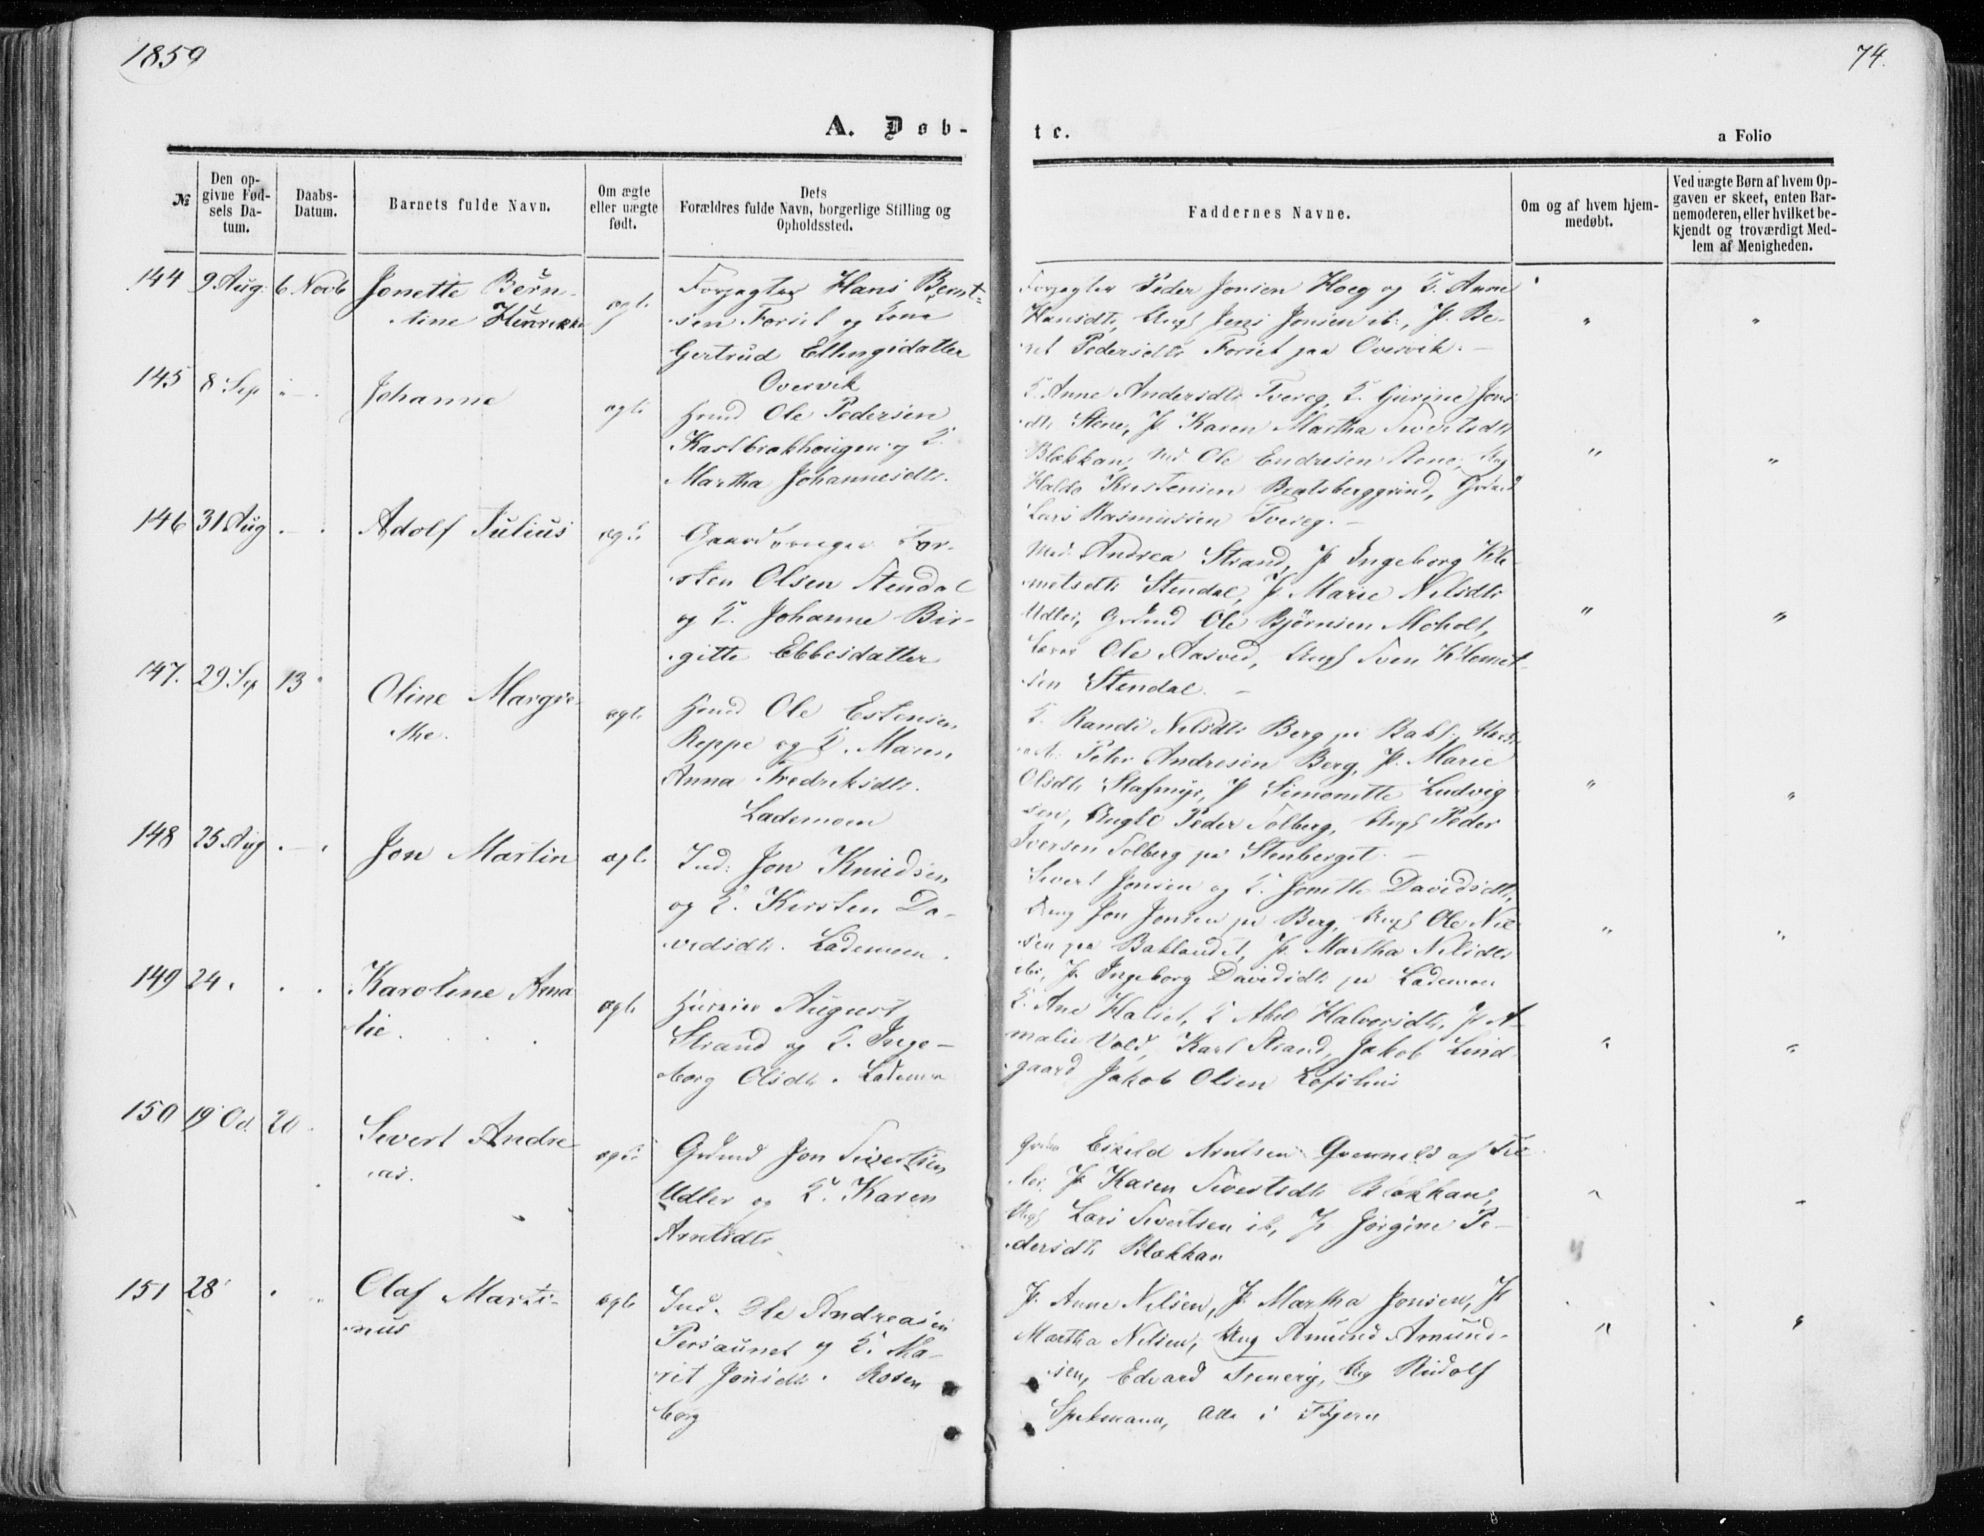 1859
74.
A. Døb-
te.
a Folio
№
Den op-
givne Fød-
sels Da-
tum.
Daabs-
Datum.
Barnets fulde Navn.
Om ægte
eller uægte
født.
Dets
Forældres fulde Navn, borgerlige Stilling og
Opholdssted.
Faddernes Navne.
Om og af hvem hjem-
medøbt.
Ved uægte Børn af hvem Op-
gaven er skeet, enten Bar-
nemoderen, eller hvilket be-
kjendt og troværdigt Med-
lem af Menigheden.
144 9 Aug: 6 Novb Jonette Bern-
tine Henrikke
ægte
Forpagter Hans Bernt-
sen Forset og Kone
Gertrud Ellingsdatter
Overvik
Forpagter Peder Jonsen Hoeg og K. Anne
Hansdtr, Ungk Jens Jonsen ib:, P. Be-
ret Pedersdtr Forset paa Overvik. —
145 8 Sep " Johanne
ægte
Hmd Ole Pedersen
Kastbrakhougen og K.
Martha Johannesdtr.
K. Anne Andersdtr Tvereg, K. Gurine Jons
dtr Stene, P. Karen Martha Sivertsdtr
Blækkan, Ole Endresen Stene,
Haldo Kristensen Bratsberggrind,
Lars Rasmussen Tvereg. —
146 31 Aug " " Adolf Julius
ægte
Gaardbruger Tor-
sten Olsen Stendal
og K. Johanne Bir-
gitte Ebbesdatter
Mad. Andrea Strand, P. Ingeborg Kle-
metsdtr Stendal, P. Marie Nilsdtr
Udler, Grdmd Ole Bjørnsen Moholt,
Ole Aasved, Ungk Sven Klemet-
sen Stendal. —
147. 29 Sep 13 " Oline Margre-
the.
ægte
Hmd Ole Estensen
Reppe og K. Maren
Anna Fredriksdtr.
Lademoen
K. Randi Nilsdtr Berg pr Bakl:
Peter Andresen Berg, P. Marie
Olsdtr Stafmyr, P Simonette Ludvig
sen, Ungk Peder Solberg, Ungk Peder
Iversen Solberg paa Stenberget. —
148 25 Aug " " Jon Martin
ægte
Ind: Jon Knudsen
og K. Kirsten Da-
vidsdtr. Lademoen.
Sivert Jonsen og K. Jonette Davidsdtr,
Ung Jon Jonsen pr Berg, Ungk Ole Nil
sen paa Baklandet, P. Martha Nilsdtr
ib:, P. Ingeborg Davidsdtr pr Lademoen
149 24 " " " Karoline Ama
lie.
ægte
August
Strand og K. Inge-
borg Olsdtr. Lademoen
K. Ane Halset, K Abel Halvorsdtr, P A-
malie Vold, Karl Strand, Jakob Lind
gaard Jakob Olsen
150 19 Oct. 20 Sivert Andre
as.
ægte
Grdmd Jon Sivertsen
Udler og K. Karen
Arntsdtr
Eskild Arntsen af
P. Karen Sivertsdtr Blækkan,
Ungk Lars Sivertsen ib, P. Jørgine Pe-
dersdtr Blækkan
151 28 " " Olaf Marti-
nus
ægte
Ind. Ole Andreasen
Persaunet og K. Ma-
rit Jonsdtr. Rosen
borg
P. Anne Nilsen, P. Martha Jonsen, P
Martha Nilsen, Ung Amund Amund-
sen, Edvard Ung Rudolf
Spekmann, Alle i Thjem